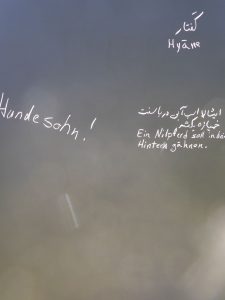 کفتار
Hyäne
Hundesohn!
ان‌شاالله اسب آبی در بالست
خمیازه بکشه
Ein Nilpferd soll in dei
Hintern gähnen.